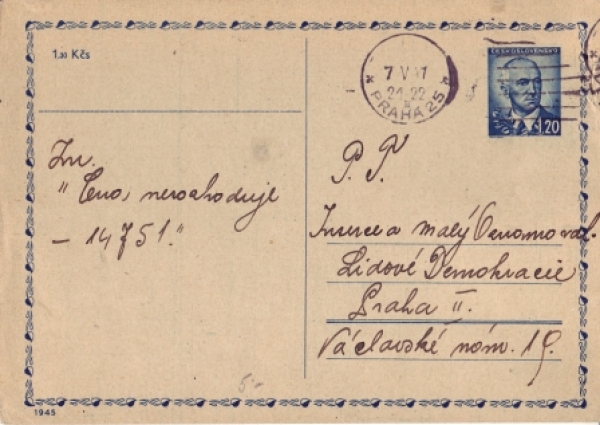 1.20 Kčs
ČESKOSLOVENSKO
1.20
PRAHA 25
7 V 47
21-22
Zn.
"Cena nerozhoduje
- 14751."
P. T.
Inserce a malý Oznamovatel
Lidové Demokracie
Praha II.
Václavské nám. 19.
5.-
1945